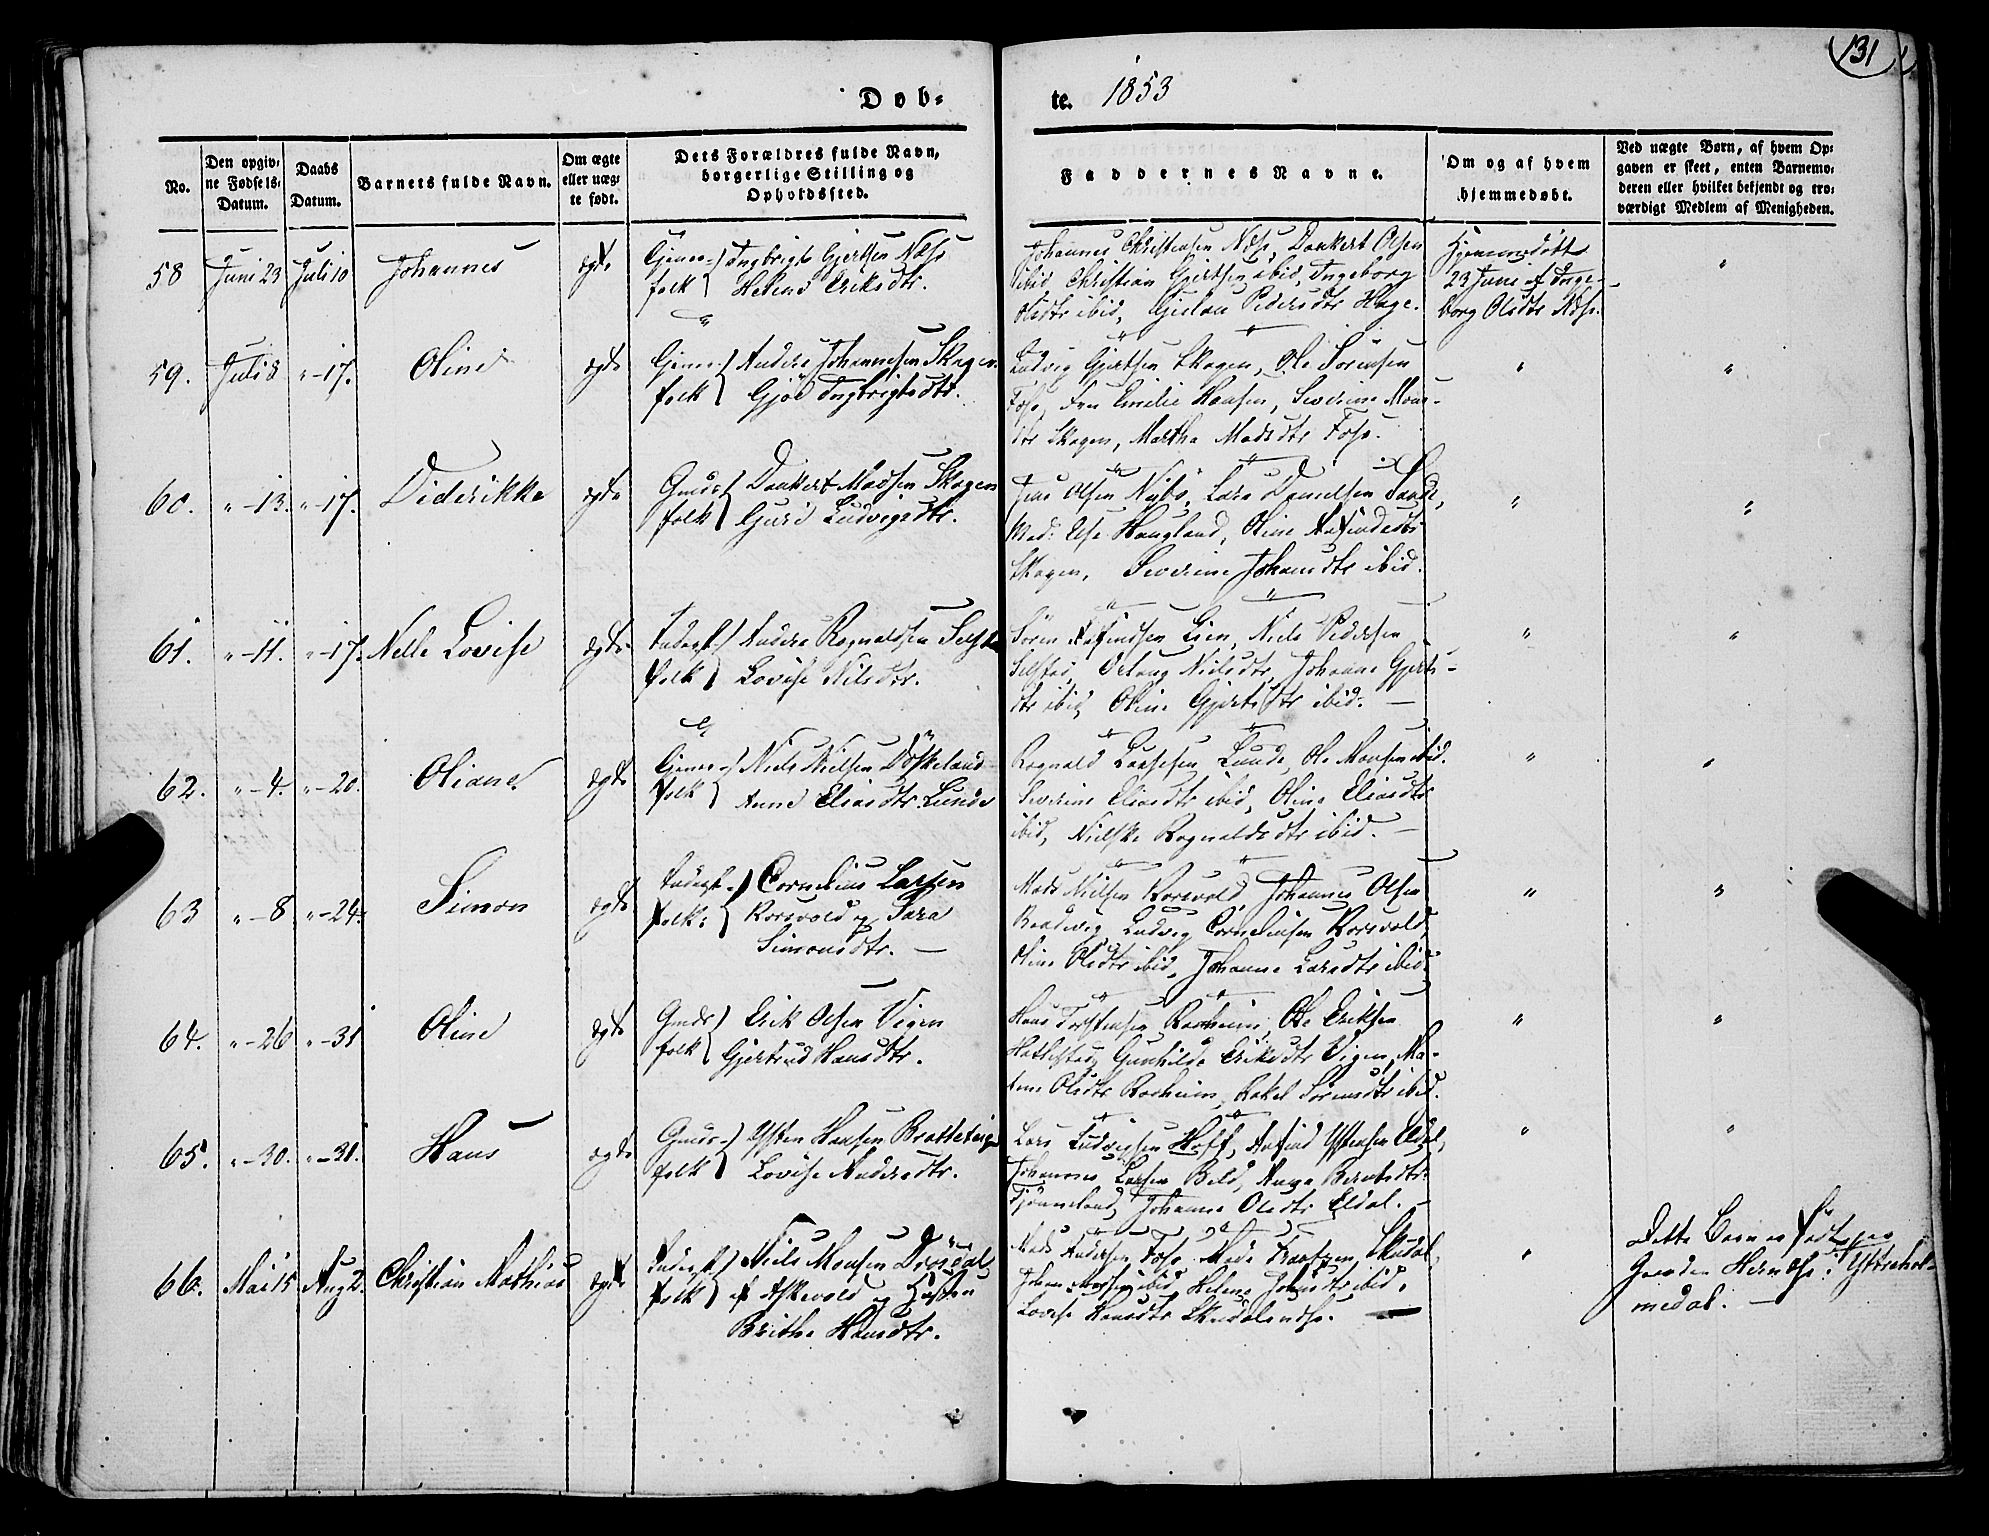 131
Døb-
te. 1853
No.
Den opgiv-
ne Fødsels-
Datum.
Daabs
Datum.
Barnets fulde Navn.
Om ægte
eller uæg-
te født.
Dets Forældres fulde Navn,
borgerlige Stilling og
Opholdssted.
Faddernes Navne.
Om og af hvem
hjemmedøbt.
Ved uægte Børn, af hvem Op-
gaven er skeet, enten Barnemo-
deren eller hvilket bekjendt og tro-
værdigt Medlem af Menigheden.
58 Juni 23 Juli 10 Johannes ægte
Ingbrigt Gjertsen Næss
folk Helene Eriksdtr.
Johannes Christensen Næss, Dankert Olsen
ibid, Christian Gjertsen ibid, Ingeborg
Olsdtr ibid, Pedersdtr Hage.
Hjemmedøbt
23 Juni af Inge-
borg Olsdtr Næss.
"
59. Juli 8 "-17. Oline ægte
Anders Johannesen Skagen
folk Gjøe Ingbrigtsdtr.
Ludvig Gjertsen Skagen, Ole Sørensen
Foss, Fru Emilie Hansen, Severine Mons-
dtr Skagen, Martha Madsdtr Foss.
" "
60. "-13. "-17. Diderikke ægte
Gmds- Dankert Madsen Skagen
folk Guri Ludvigsdtr.
Jens Olsen Næss, Lars Danielsen
Mad: Else Haugland, Oline
Skagen, Severine Johansdtr ibid.
" "
61. "-11. "-17. Nelle Lovise ægte
Inderst- Anders Rognaldsen Selstad
folk Lovise Nilsdtr.
Søren Lien, Niels Pedersen
Selstad, Nielsdtr, Johanne Gjerts-
dtr ibid, Oline Gjertsdtr ibid. —
" "
62. "-4. "-20. Oliane ægte
Niels Nielsen Döskeland
folk Anne Eliasdtr. Lunde
Rognald Lassesen Lunde, Ole Monsen ibid.
Severine Eliasdtr ibid, Oline Eliasdtr
ibid, Nielske Rognaldsdtr ibid. —
" "
63 "-8 "-24. Simon ægte
Inderst- Cornelius Larsen
folk: Korsvold og Sara
Simonsdtr. —
Mads Nielsen Korsvold, Johannes Olsen
Ludvig Corneliusen Korsvold,
Oline Olsdtr ibid, Johanne Larsdtr ibid.
" "
64. "-26 "-31 Oline ægte
Gmds- Erik Olsen Vigen
folk Gjertrud Hansdtr.
Hans Torstensen Ole Eriksen
Gunhilde Eriksdtr Vigen, Ma-
Olsdtr Rakel Sørensdtr ibid.
" "
65. "-30. "-31. Hans ægte
Gmds- Ysten Hansen Bratteteig
folk Lovise Andersdtr.
Lars Ludvigsen Hoff, Ystensen Eldal,
Johannes Larsen Anna Berntsdtr
Johanne Olsdtr Eldal. —
" "
66. Mai 15 Aug 2. Christian Mathias ægte
Inderst- Niels Monsen
folk af Askevold og Hustru
Brithe Hansdtr.
Mads Andersen Foss, Mads Skudal,
ibid, Helene Johansdtr ibid,
Lovise Hansdtr
"
Dette Barn er født paa
Gaarden i Yttreholmedal. —